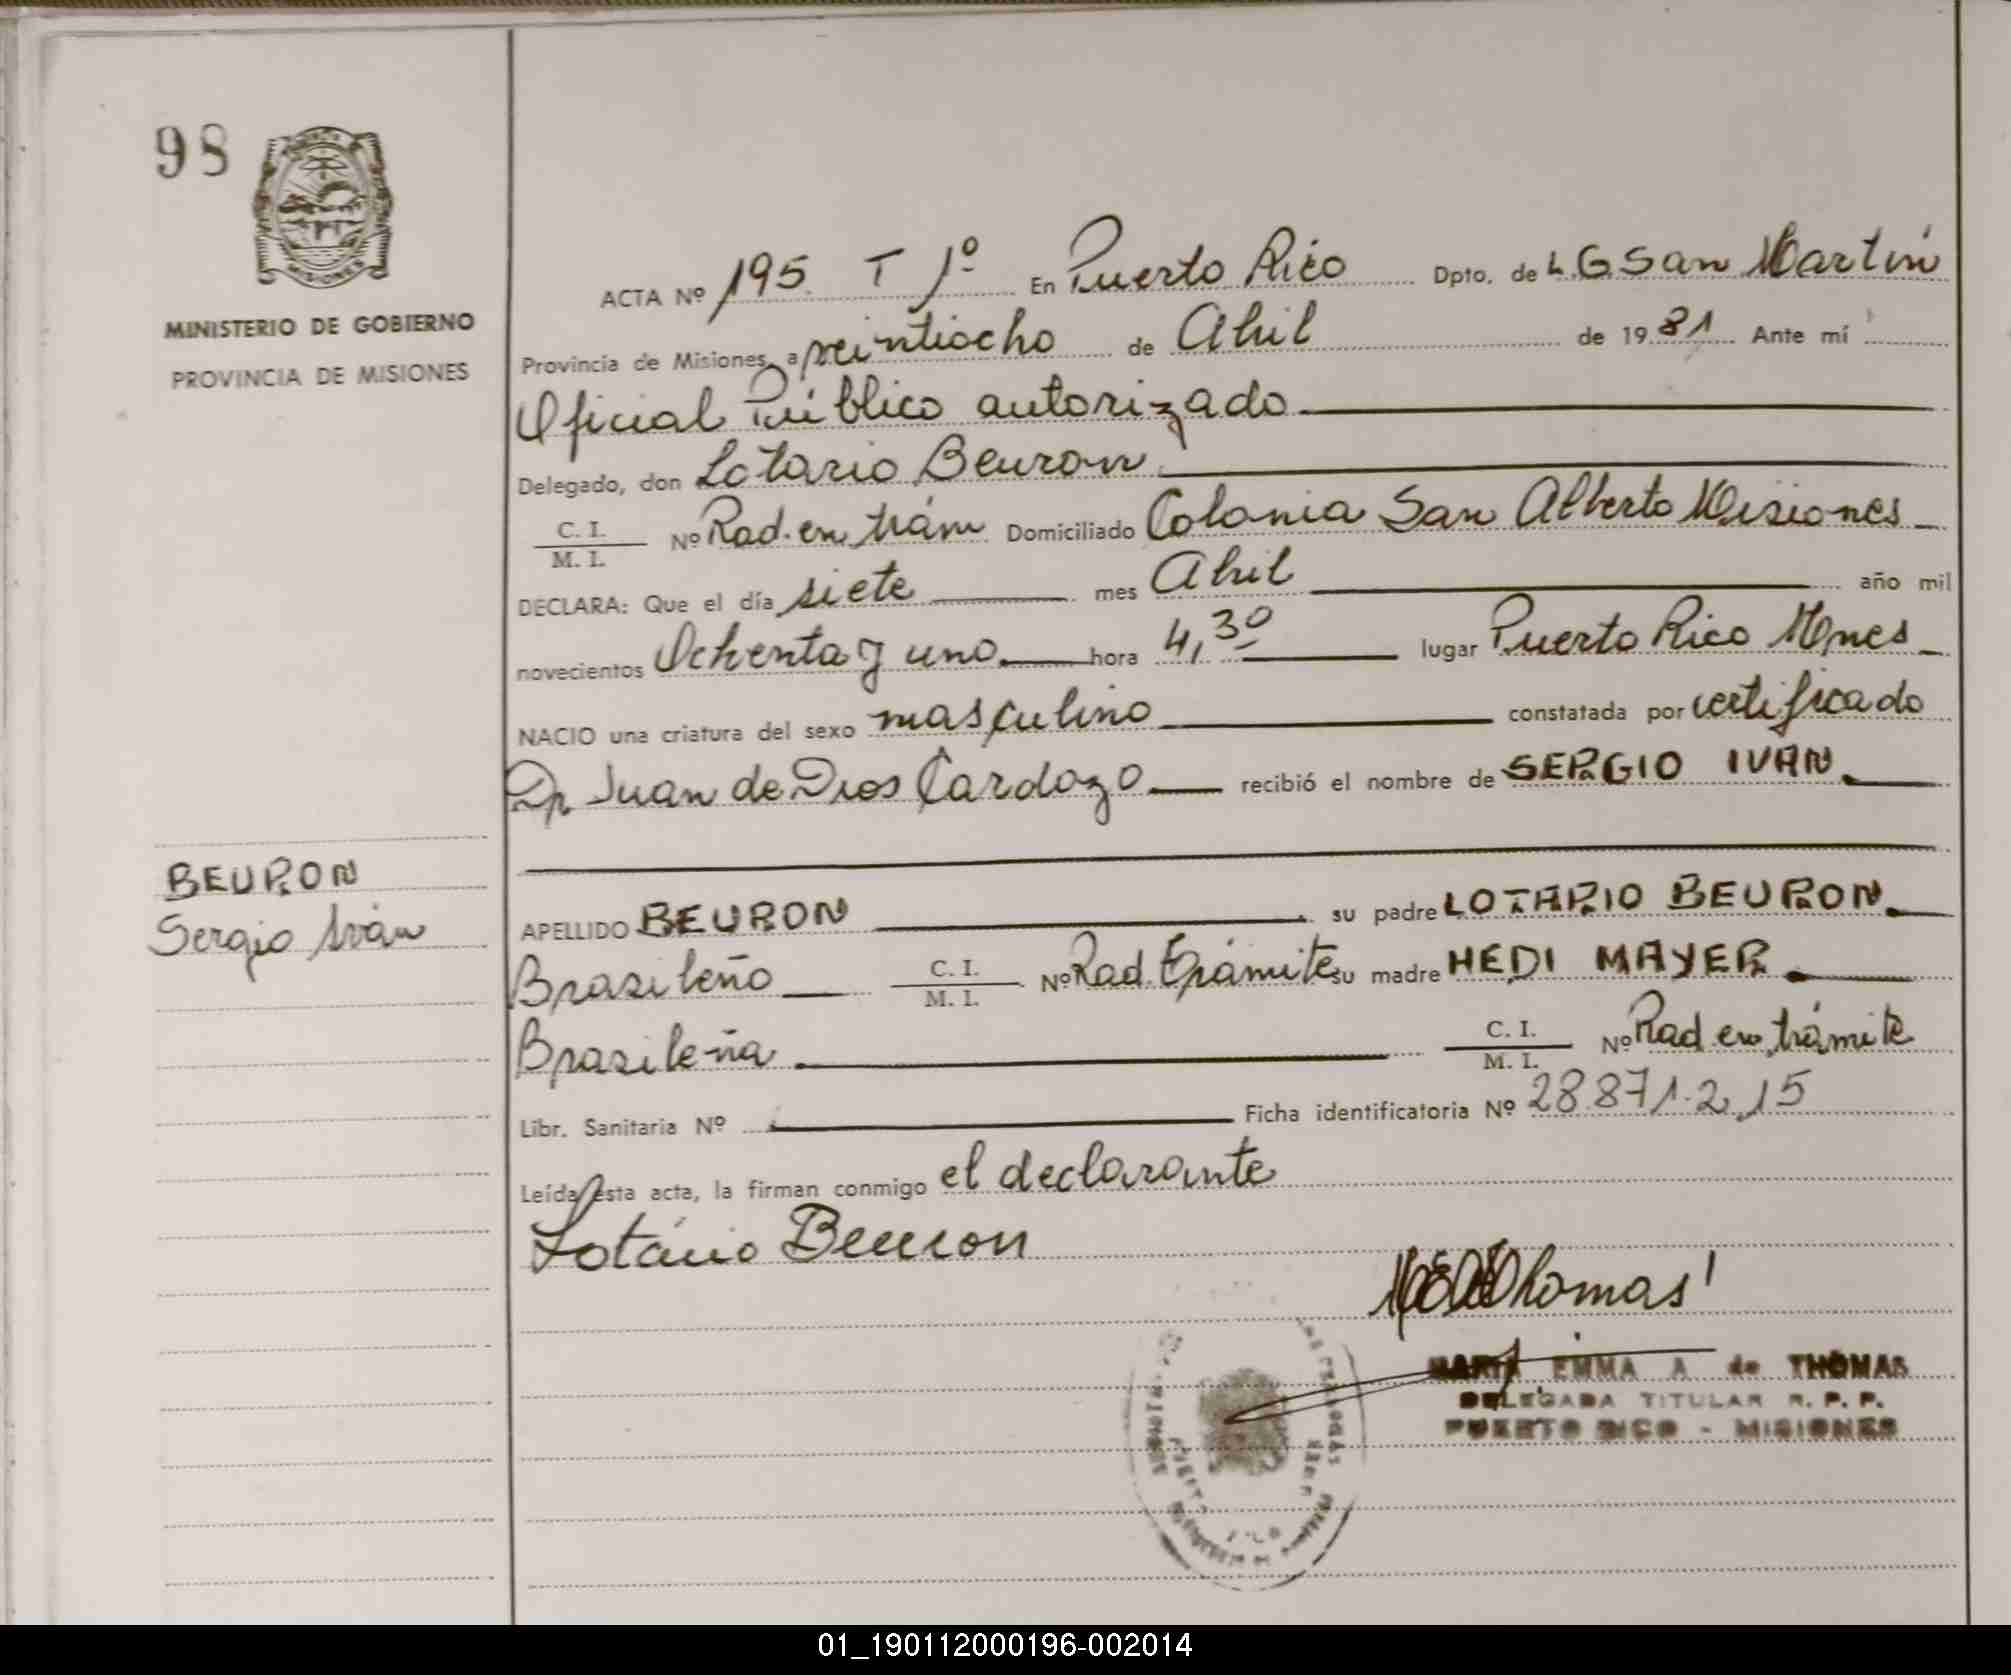 98
MINISTERIO DE GOBIERNO
PROVINCIA DE MISIONES
BEURON
Sergio Iván
ACTA Nº 195 T 1º En Puerto Rico Dpto. de L.G San Martín
Provincia de Misiones, a veintiocho de Abril de 1981 Ante mí
Oficial Público autorizado
Delegado, don Lotario Beuron
C. I. / M. I. Nº Rad. en trám Domiciliado Colonia San Alberto Misiones
DECLARA: Que el día siete mes Abril año mil
novecientos Ochenta y uno hora 4,30 lugar Puerto Rico Mnes
NACIO una criatura del sexo masculino constatada por certificado
Dr Juan de Dios Cardozo recibió el nombre de SERGIO IVAN
APELLIDO BEURON su padre LOTARIO BEURON
Brasileño C. I. / M. I. Nº Rad. Trámite su madre HEDI MAYER
Brasileña C. I. / M. I. Nº Rad en trámite
Libr. Sanitaria Nº Ficha identificatoria Nº 28.871.215
Leída esta acta, la firman conmigo el declarante
Lotário Beuron
Thomas
MARIA EMMA A de THOMAS
DELEGADA TITULAR R. P. P.
PUERTO RICO - MISIONES
01_190112000196-002014